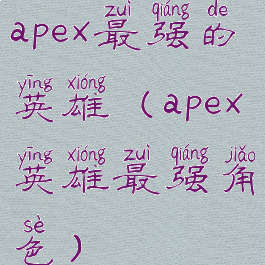 zuì qiáng de
apex最强的
yīng xióng
英雄（apex
yīng xióng zuì qiáng jiǎo
英雄最强角
sè
色）